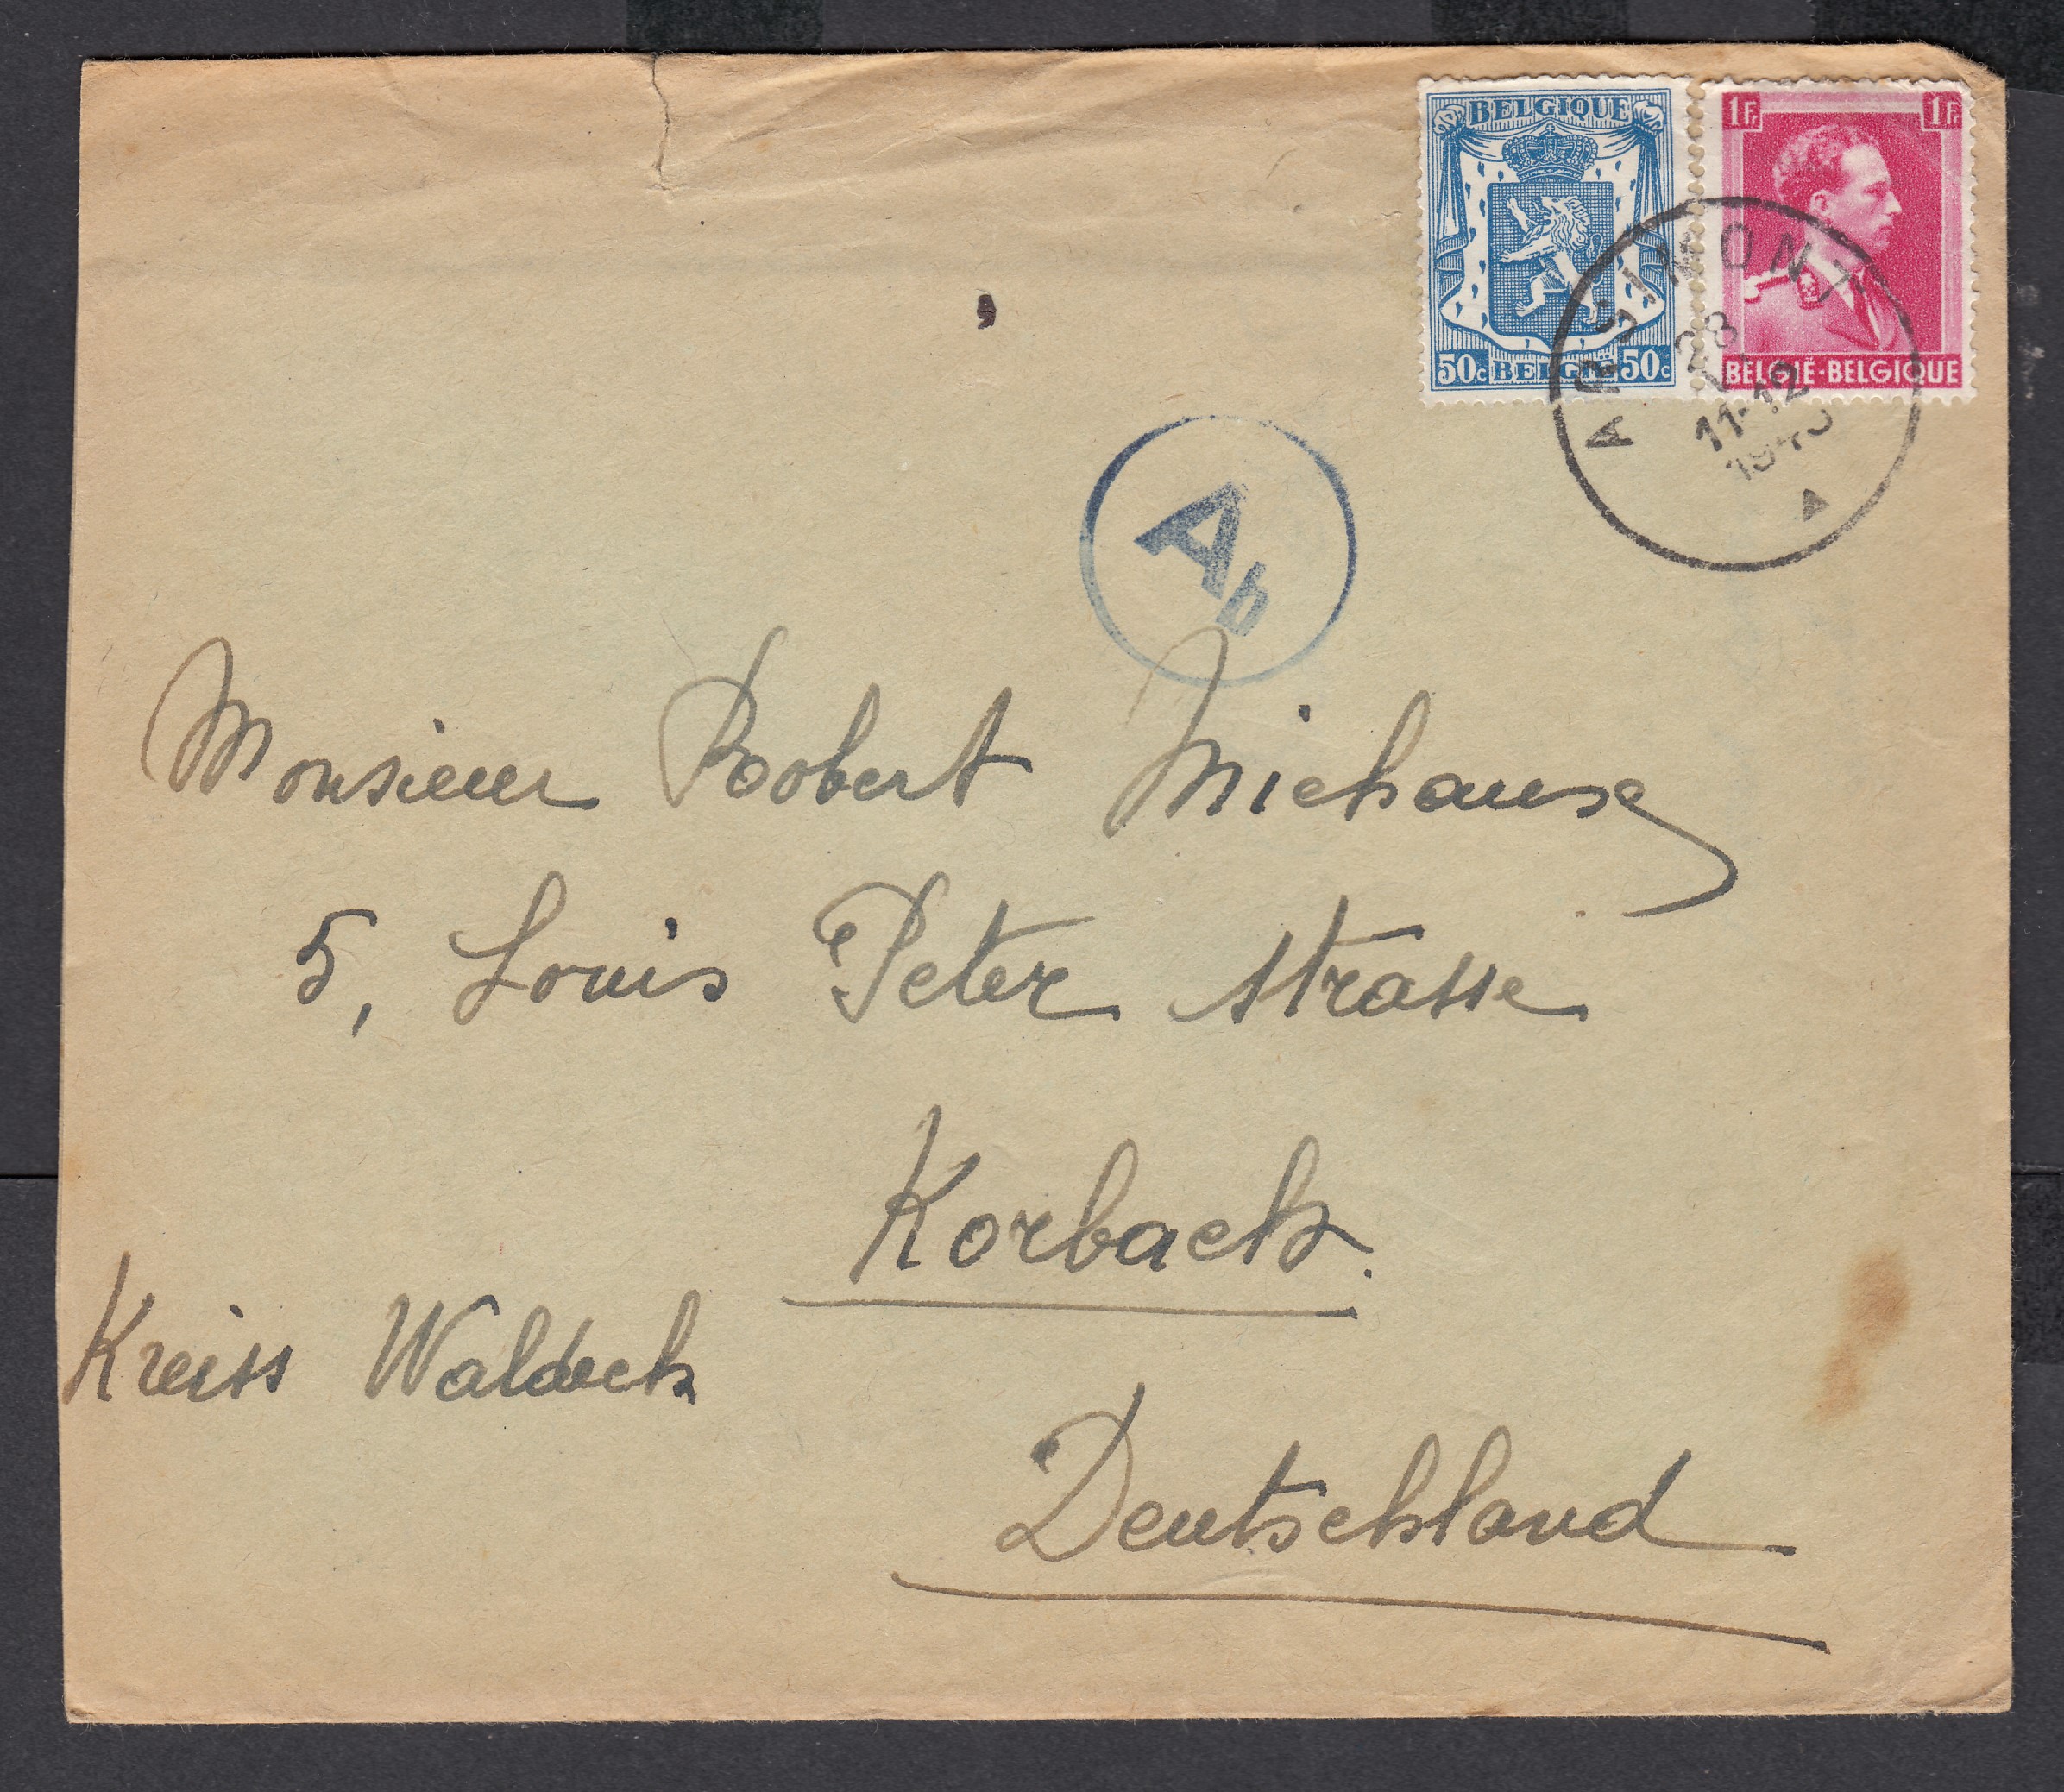 BELGIQUE
50c BELGIE 50c
1Fr 1Fr
BELGIË-BELGIQUE
ARSIMONT
28
11-12
Ab
Monsieur Robert Michaux
5, Louis Peter strasse
Korbach.
Kreiss Waldeck
Deutschland